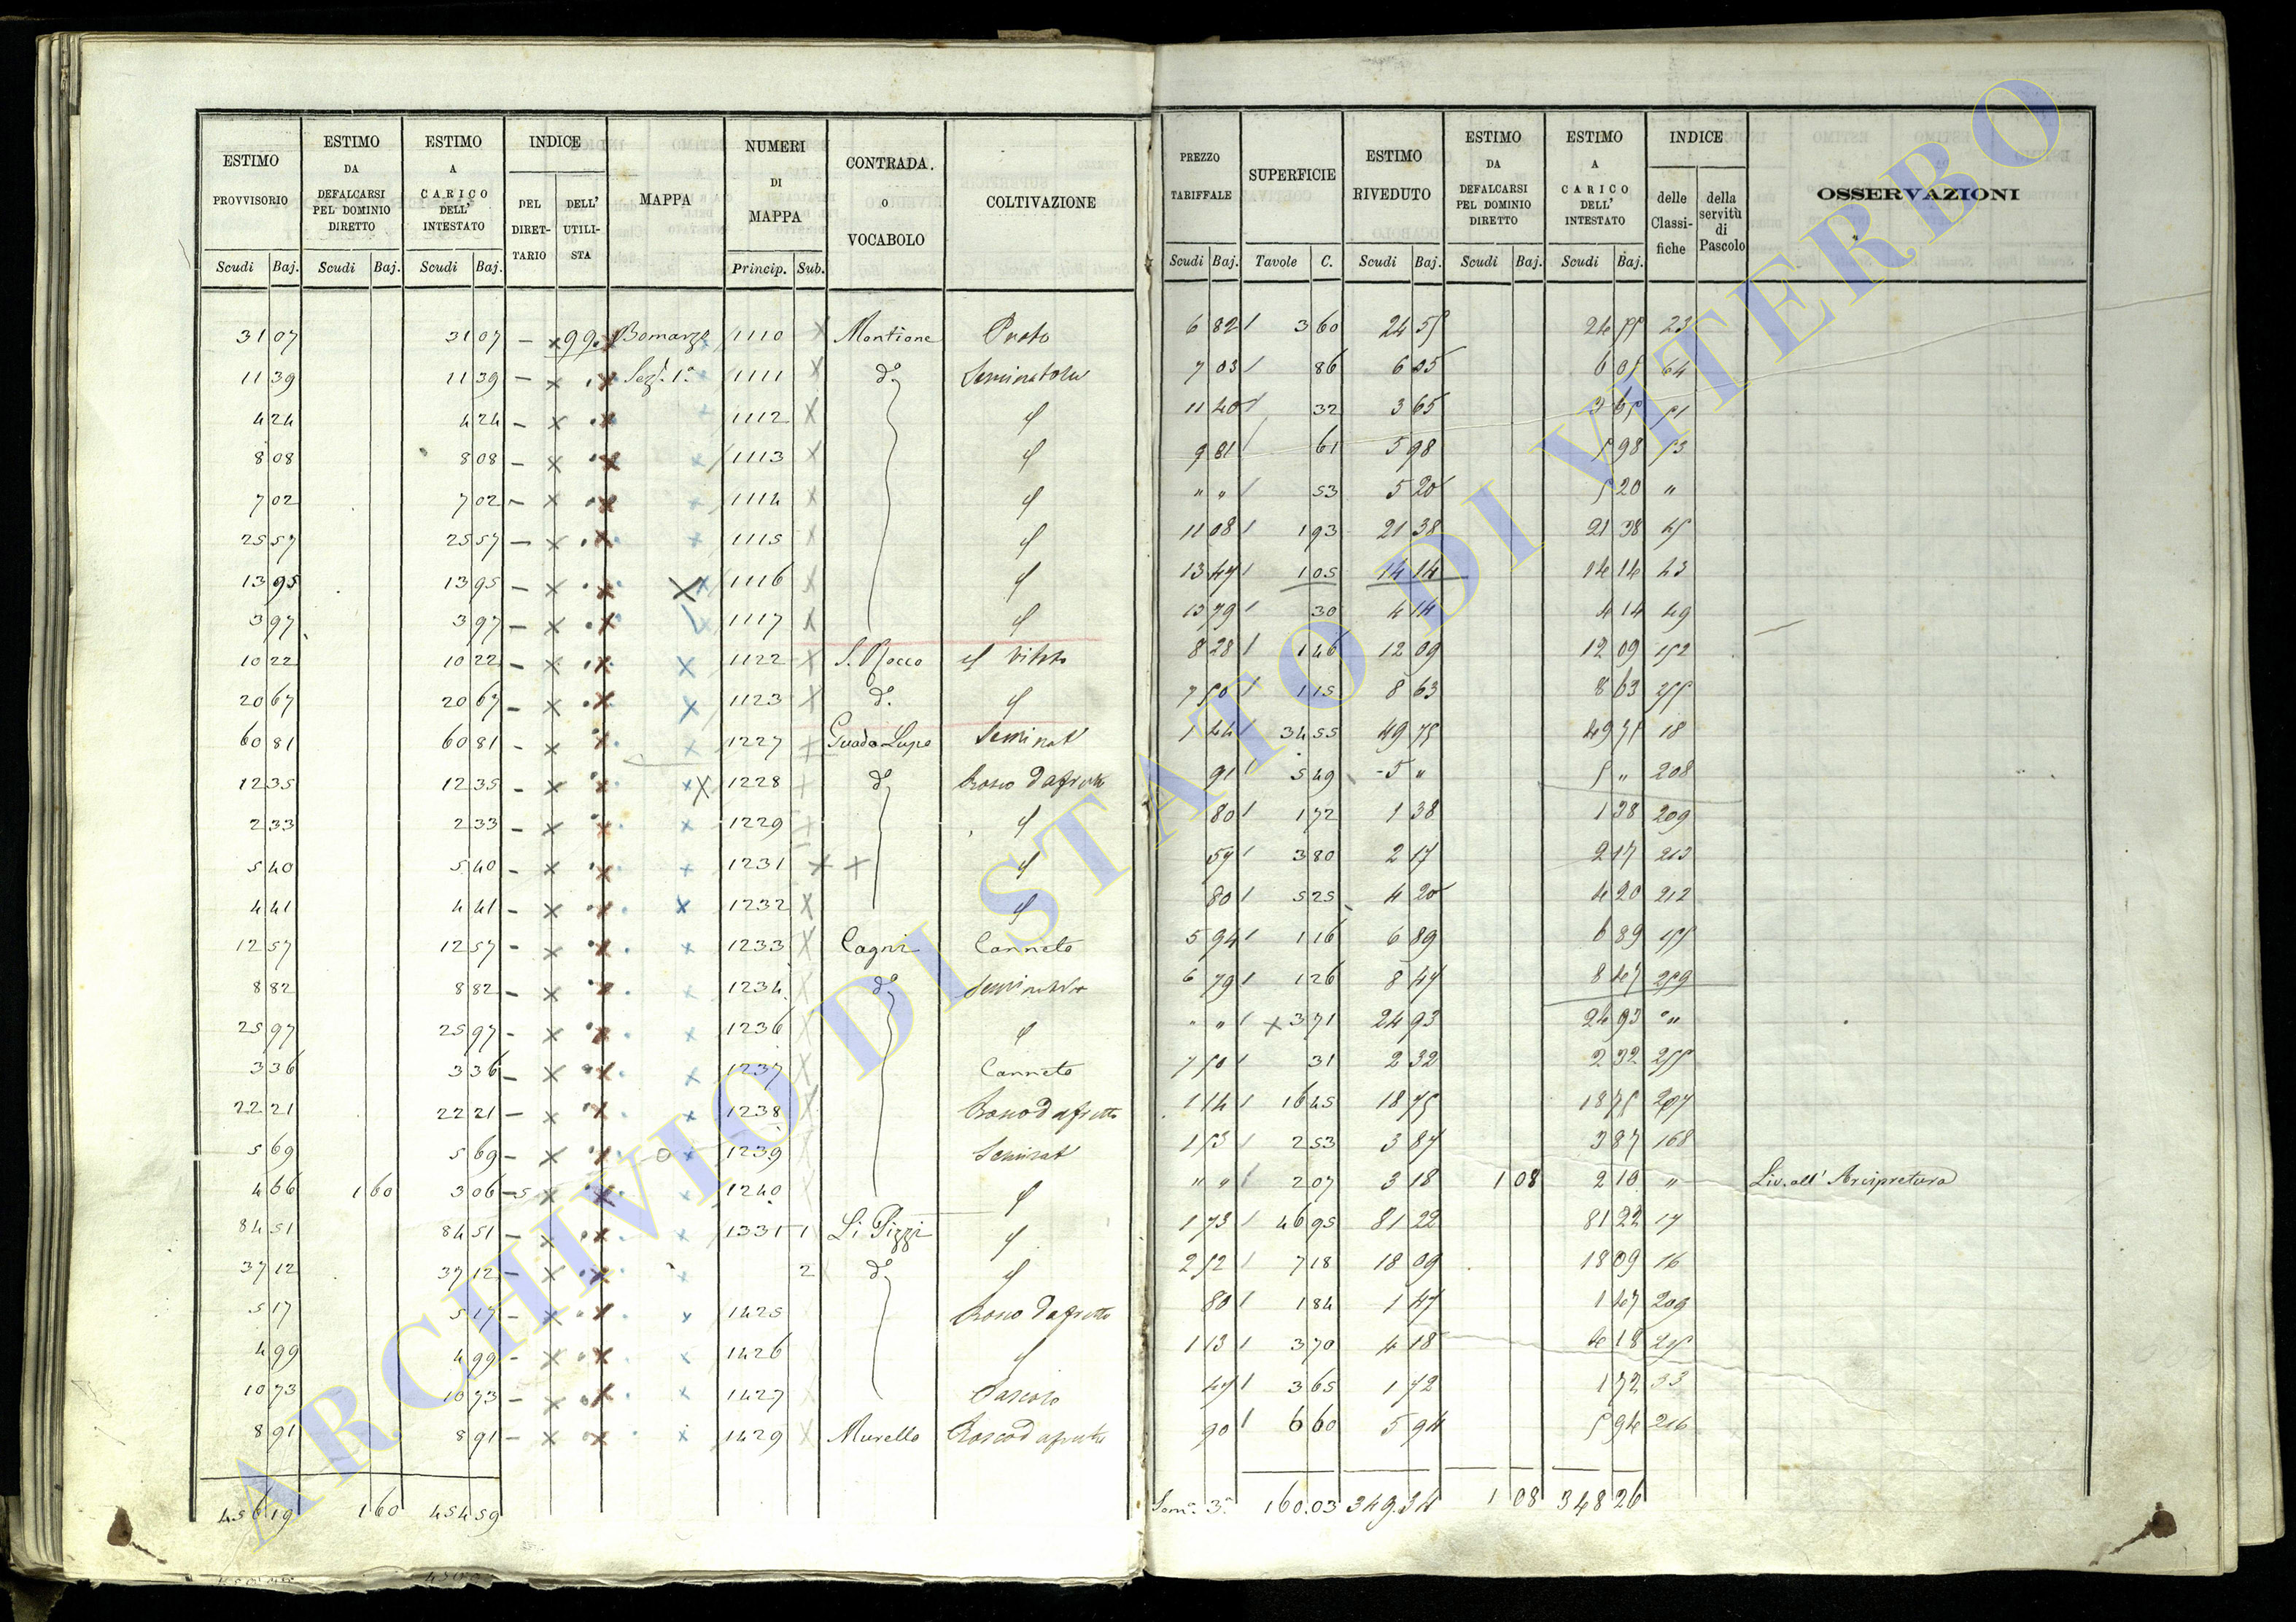 ESTIMO PROVVISORIO | ESTIMO DA DEFALCARSI PEL DOMINIO DIRETTO | ESTIMO A CARICO DELL' INTESTATO | INDICE DEL DIRET-TARIO | DELL' UTILI-STA | MAPPA | NUMERI DI MAPPA | CONTRADA. O VOCABOLO | COLTIVAZIONE | PREZZO TARIFFALE | SUPERFICIE | ESTIMO RIVEDUTO | ESTIMO DA DEFALCARSI PEL DOMINIO DIRETTO | ESTIMO A CARICO DELL' INTESTATO | INDICE delle Classi-fiche | della servitù di Pascolo | OSSERVAZIONI
Scudi Baj. | Scudi Baj. | Scudi Baj. | Princip. Sub. | Scudi Baj. | Tavole C. | Scudi Baj. | Scudi Baj. | Scudi Baj.
31 07 | 31 07 | – | x 99. | Bomarzo | 1110 | Montione | Prato | 6 82 | 3 60 | 24 55 | 24 55 | 23
11 39 | 11 39 | – | x | Sezn. 1a. | 1111 | do | Seminativo | 7 03 | 86 | 6 05 | 6 05 | 64
4 24 | 4 24 | – | x | 1112 | 11 40 | 32 | 3 65 | 3 65 | 51
8 08 | 8 08 | – | x | 1113 | 9 81 | 61 | 5 98 | 5 98 | 53
7 02 | 7 02 | – | x | 1114 | " " | 53 | 5 20 | 5 20 | "
25 57 | 25 57 | – | x | 1115 | 11 08 | 1 93 | 21 38 | 21 38 | 45
13 95 | 13 95 | – | x | 1116 | 13 47 | 1 05 | 14 14 | 14 14 | 43
3 97 | 3 97 | – | x | 1117 | 13 79 | 30 | 4 14 | 4 14 | 49
10 22 | 10 22 | – | x | 1122 | S. Rocco | Vitato | 8 28 | 1 46 | 12 09 | 12 09 | 152
20 67 | 20 67 | – | x | 1123 | do. | 7 50 | 1 15 | 8 63 | 8 63 | 255
60 81 | 60 81 | – | x | 1227 | Guado Lupo | Seminat | 1 44 | 34 55 | 49 75 | 49 75 | 18
12 35 | 12 35 | – | x | 1228 | do | Bosco d'a frutto | 91 | 5 49 | 5 " | 5 " | 208
2 33 | 2 33 | – | x | 1229 | 80 | 1 72 | 1 38 | 1 38 | 209
5 40 | 5 40 | – | x | 1231 | 57 | 3 80 | 2 17 | 2 17 | 213
4 41 | 4 41 | – | x | 1232 | 80 | 5 25 | 4 20 | 4 20 | 212
12 57 | 12 57 | – | x | 1233 | Cagni | Canneto | 5 94 | 1 16 | 6 89 | 6 89 | 155
8 82 | 8 82 | – | x | 1234 | do | Seminativo | 6 79 | 1 26 | 8 47 | 8 47 | 259
25 97 | 25 97 | – | x | 1236 | " " | x 3 71 | 24 93 | 24 93 | "
3 36 | 3 36 | – | x | 1237 | Canneto | 7 50 | 31 | 2 32 | 2 32 | 255
22 21 | 22 21 | – | x | 1238 | Bosco d'a frutto | 1 14 | 16 45 | 18 75 | 18 75 | 207
5 69 | 5 69 | – | x | 1239 | Seminat | 1 53 | 2 53 | 3 87 | 3 87 | 168
4 66 | 1 60 | 3 06 | –5 | x | 1240 | " " | 2 07 | 3 18 | 1 08 | 2 10 | " | Liv. all' Arcipretura
84 51 | 84 51 | – | x | 1331 1 | Li Pizzi | 1 73 | 46 95 | 81 22 | 81 22 | 17
37 12 | 37 12 | – | x | 2 | do | 2 52 | 7 18 | 18 09 | 18 09 | 16
5 17 | 5 17 | – | x | 1425 | Bosco d'a frutto | 80 | 1 84 | 1 47 | 1 47 | 209
4 99 | 4 99 | – | x | 1426 | 1 13 | 3 70 | 4 18 | 4 18
10 73 | 10 73 | – | x | 1427 | Pascolo | 47 | 3 65 | 1 72 | 1 72 | 33
8 91 | 8 91 | – | x | 1429 | Murello | Bosco d'a frutto | 90 | 6 60 | 5 94 | 5 94 | 216
456 19 | 1 60 | 454 59 | Som. 3a. | 160.03 | 349.34 | 1 08 | 348 26
ARCHIVIO DI STATO DI VITERBO